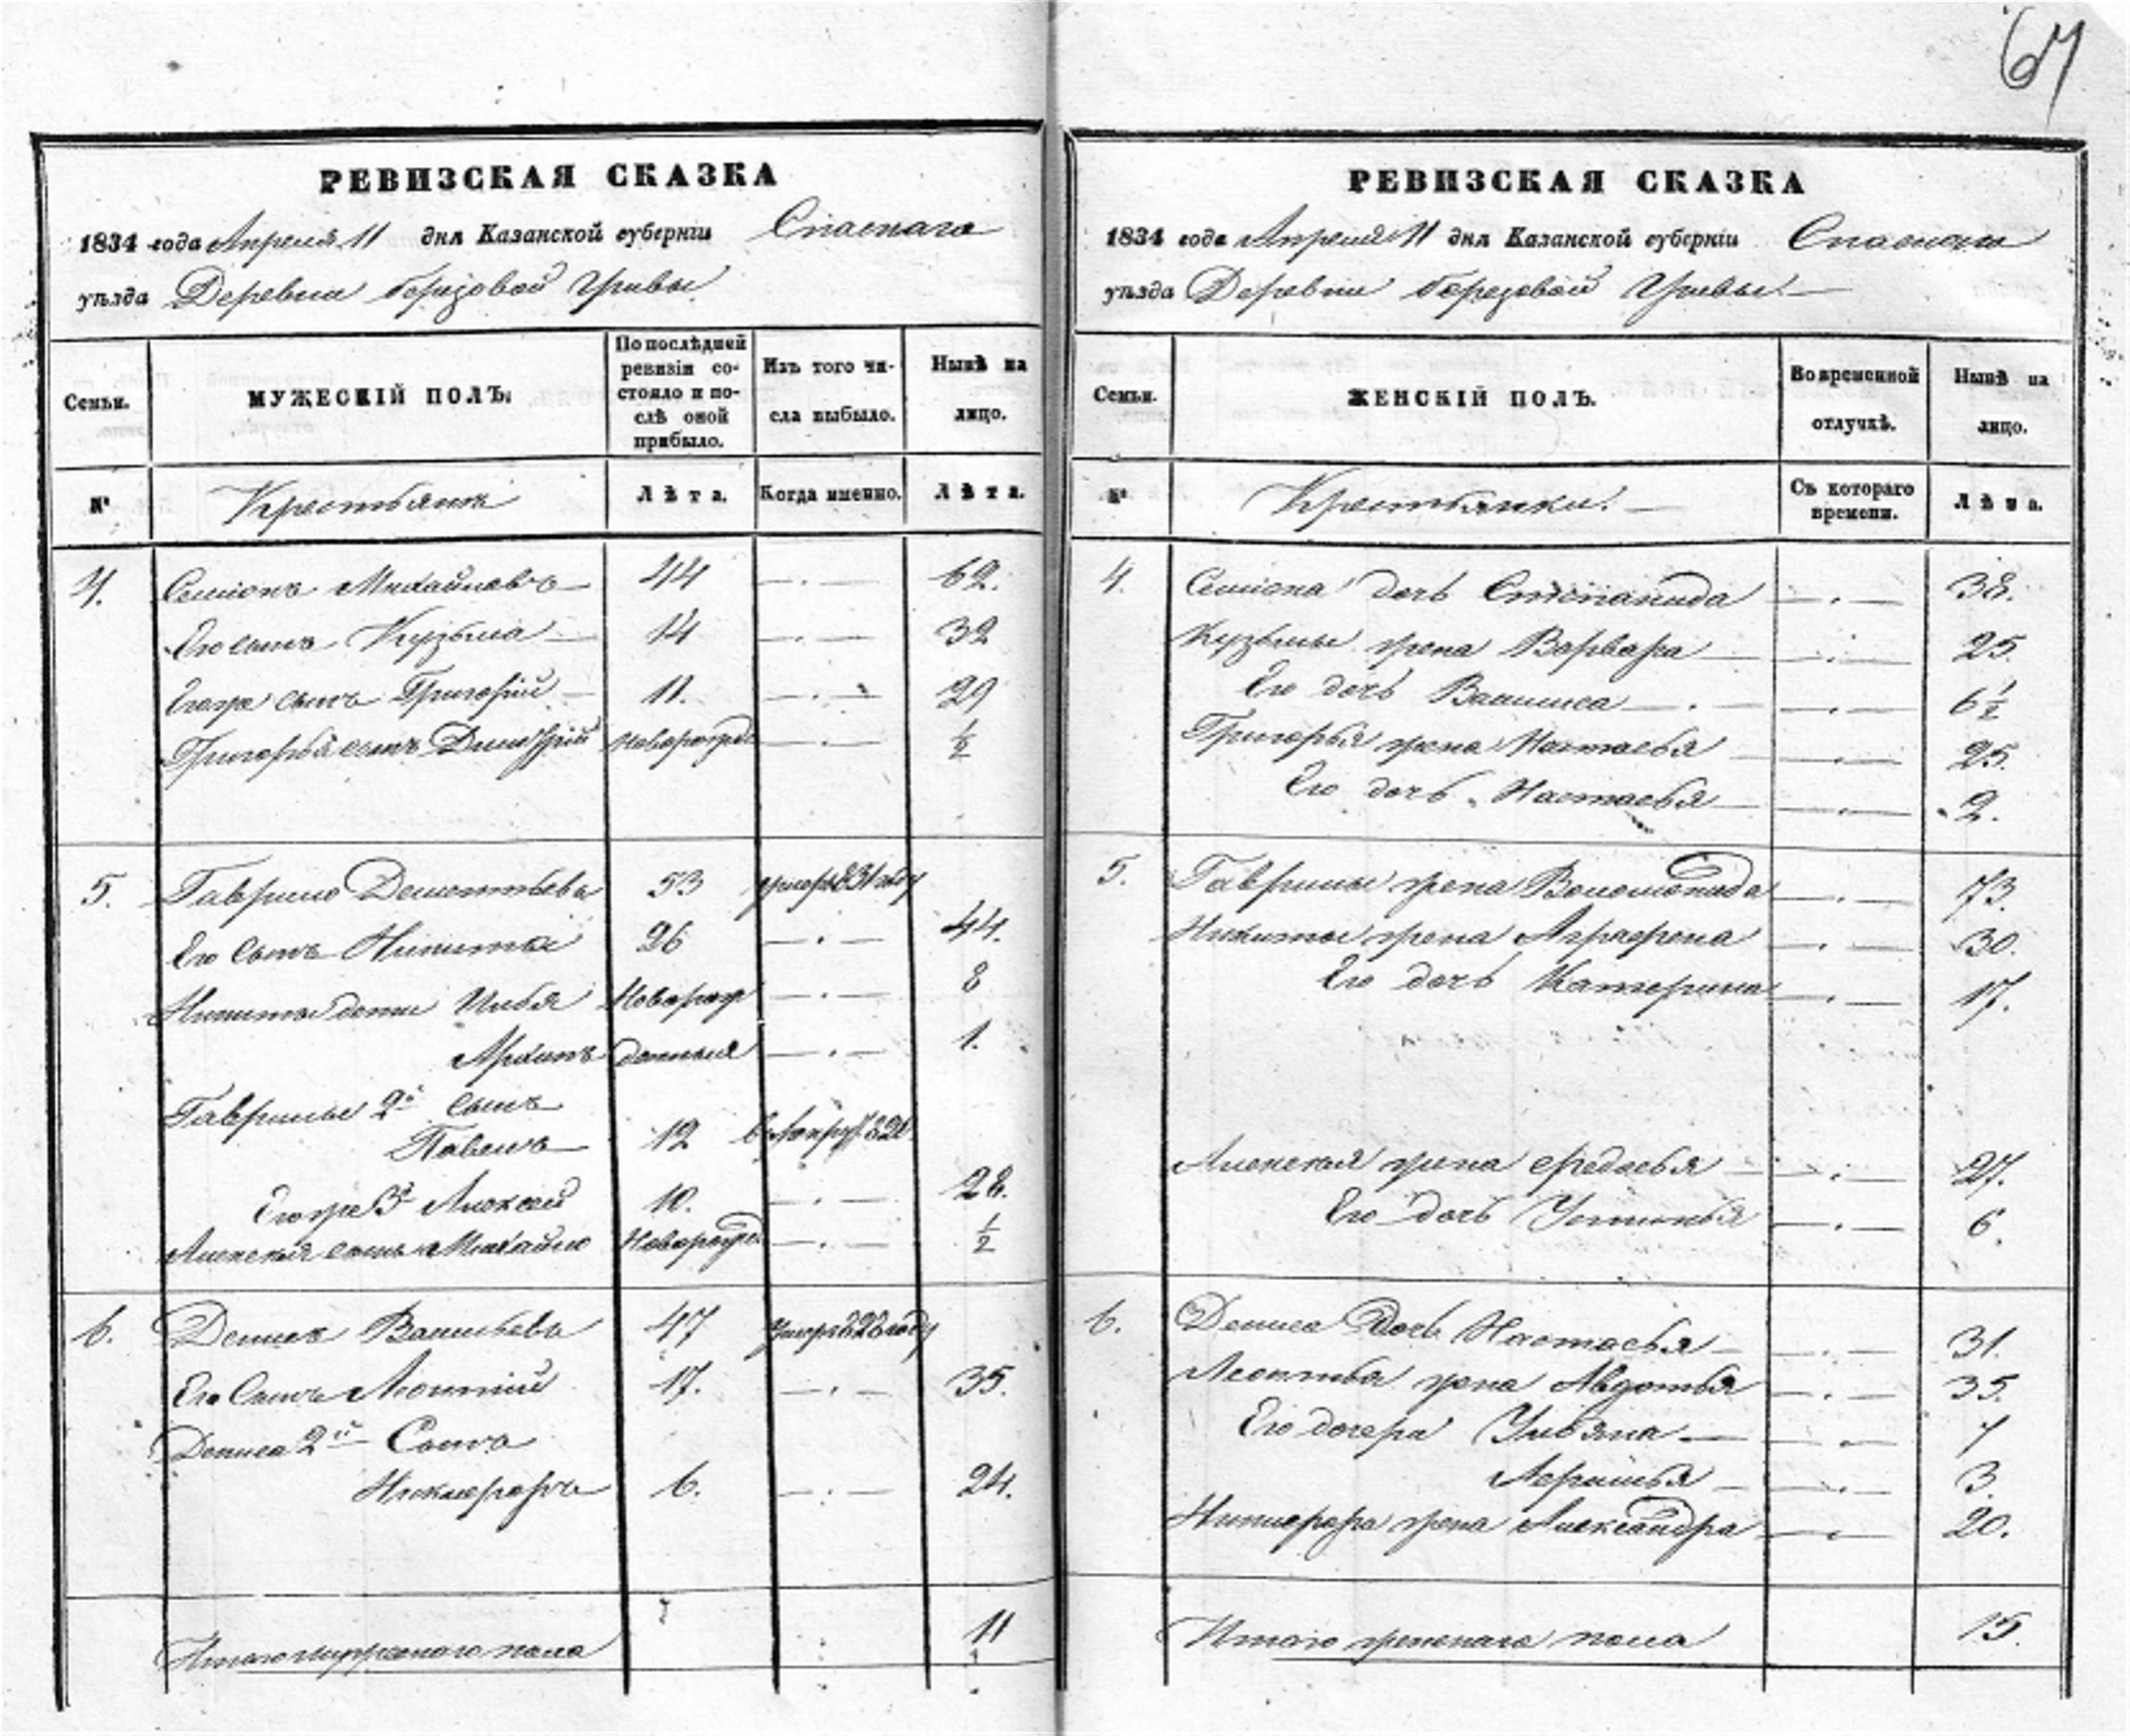 67
РЕВИЗСКАЯ СКАЗКА
1834 года Апреля 11 дня Казанской губернiи Спаскаго
уѣзда Деревни берьозовой Гривы
Семьи.
МУЖЕСКIЙ ПОЛЪ.
По послѣдней ревизiи состояло и послѣ оной прибыло.
Изъ того числа выбыло.
Нынѣ на лицо.
№
Крестьяне
Лѣта.
Когда именно.
Лѣта.
4. Семіонъ Михайловъ 44 62.
Его сынъ Кузьма 14 32
Егоже сынъ Григорій 11. 29
Григорья сынъ Дмитрій новорожде 1/2
5. Гаврило Дементьевъ 53 умеръ 831 году
Его Сынъ Никита 26 44.
Никиты дети Илья Новорож 8
Архипъ денныя 1.
Гаврилы 2й сынъ
Павелъ 12
Егоже 3й Алексей 10. 28.
Алексея сынъ Михайло Новорожде 1/2
6. Денис Васильевъ 47 Умеръ 828 году
Его Сынъ Леонтий 17. 35.
Дениса 2й Сынъ
Никифоръ 6. 24.
Итого мужескаго пола 11
РЕВИЗСКАЯ СКАЗКА
1834 года Апреля 11 дня Казанской губернiи Спаскаго
уѣзда Деревни березовой Гривы
Семьи.
ЖЕНСКIЙ ПОЛЪ.
Во временной отлучкѣ.
Нынѣ на лицо.
№
Крестьянки.
Съ котораго времени.
Лѣта.
4. Семіона дочь Степанида 38.
Кузьмы жена Варвара 25.
Его дочь Василиса 6 1/2
Григорья жена Настасья 25.
Его дочь Настасья 2.
5. Гаврилы жена 73.
Никиты жена Аграфена 30.
Его дочь Катерина 17.
Алексея жена Федосья 27.
Его дочь Устинья 6.
6. Дениса Дочь Настасья 31.
Леонтья жена Авдотья 35.
Его дочера Ульяна 7
3.
Никифора жена Александра 20.
Итого женскаго пола 15.